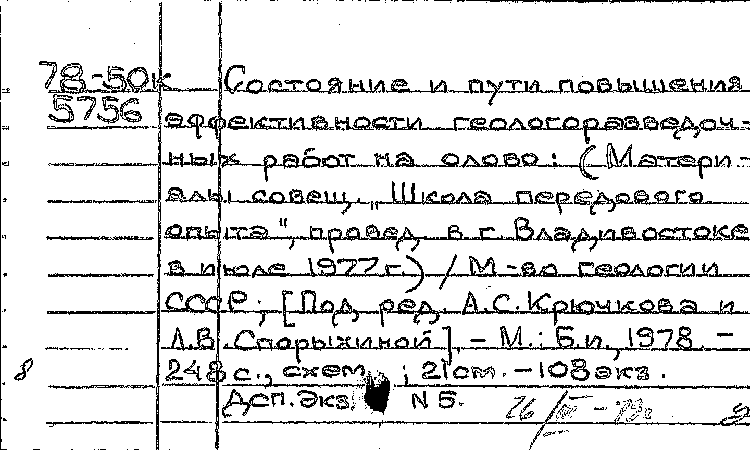 78-50к Состояние и пути повышения
5756 эффективности геологоразведоч-
ных работ на олово: (Матери-
алы совещ. „Школа передового
опыта", провед. в г. Владивостоке
в июле 1977 г.) / М-во геологии
СССР; [Под ред. А.С. Крючкова и
Л.В. Спорыхиной]. - М.: Б.и., 1978. -
8 248 с., схем. ; 21 см. - 108 экз.
Дсп. Экз. N 5.